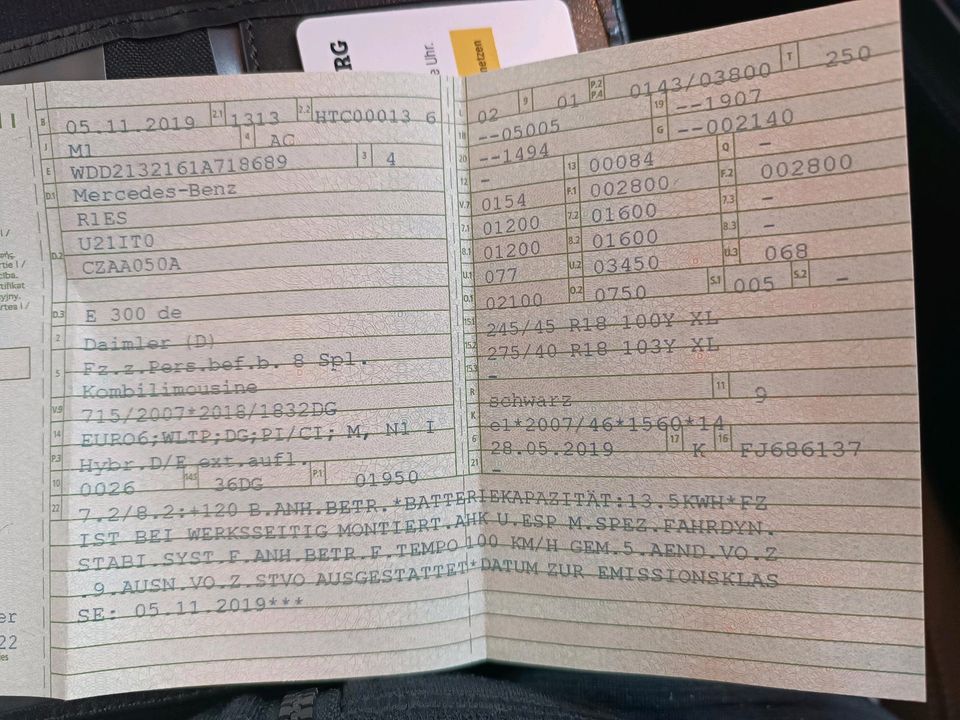 RG
a Uhr.
netzen
B 05.11.2019 2.1 1313 2.2 HTC00013 6
J M1 4 AC
E WDD2132161A718689 3 4
D.1 Mercedes-Benz
R1ES
D.2 U21IT0
CZAA050A
D.3 E 300 de
2 Daimler (D)
5 Fz.z.Pers.bef.b. 8 Spl.
Kombilimousine
V.9 715/2007*2018/1832DG
14 EURO6;WLTP;DG;PI/CI; M, N1 I
P.3 Hybr.D/E ext.aufl.
10 0026 14.1 36DG P.1 01950
L 02 9 01 P.2 P.4 0143/03800 T 250
18 --05005 19 --1907
20 --1494 G --002140
12 - 13 00084 Q -
V.7 0154 F.1 002800 F.2 002800
7.1 01200 7.2 01600 7.3 -
8.1 01200 8.2 01600 8.3 -
U.1 077 U.2 03450 U.3 068
O.1 02100 O.2 0750 S.1 005 S.2 -
15.1 245/45 R18 100Y XL
15.2 275/40 R18 103Y XL
15.3 -
R schwarz 11 9
K e1*2007/46*1560*14
6 28.05.2019 17 K 16 FJ686137
21 -
22 7.2/8.2:+120 B.ANH.BETR.*BATTERIEKAPAZITÄT:13.5KWH*FZ
IST BEI WERKSSEITIG MONTIERT.AHK U.ESP M.SPEZ.FAHRDYN.
STABI.SYST.F.ANH.BETR.F.TEMPO 100 KM/H GEM.5.AEND.VO.Z
.9.AUSN.VO.Z.STVO AUSGESTATTET*DATUM ZUR EMISSIONSKLAS
SE: 05.11.2019***
er
22